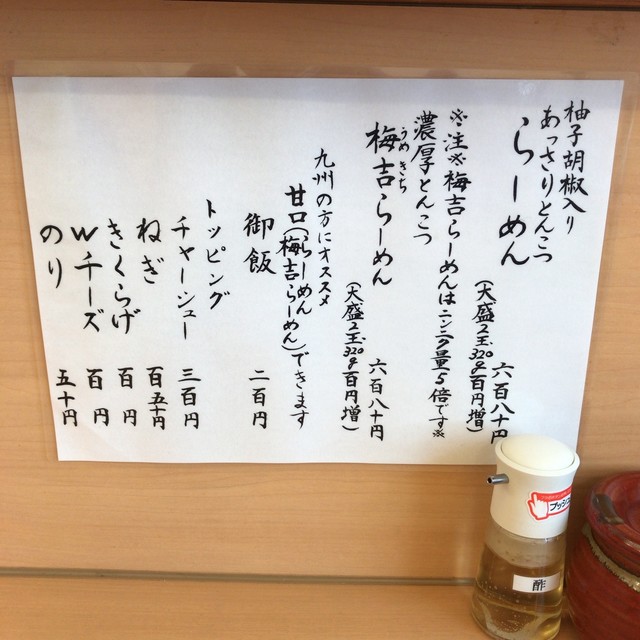 柚子胡椒入り
あっさりとんこつ
らーめん
六百八十円
(大盛2玉320g百円増)
※注※梅吉らーめんはニンニク量5倍です※
濃厚とんこつ
うめきち
梅吉らーめん
六百八十円
(大盛2玉320g百円増)
九州の方にオススメ
甘口(らーめん
梅吉らーめん)できます
御飯 二百円
トッピング
チャーシュー 三百円
ねぎ 百五十円
きくらげ 百円
Wチーズ 百円
のり 五十円
酢